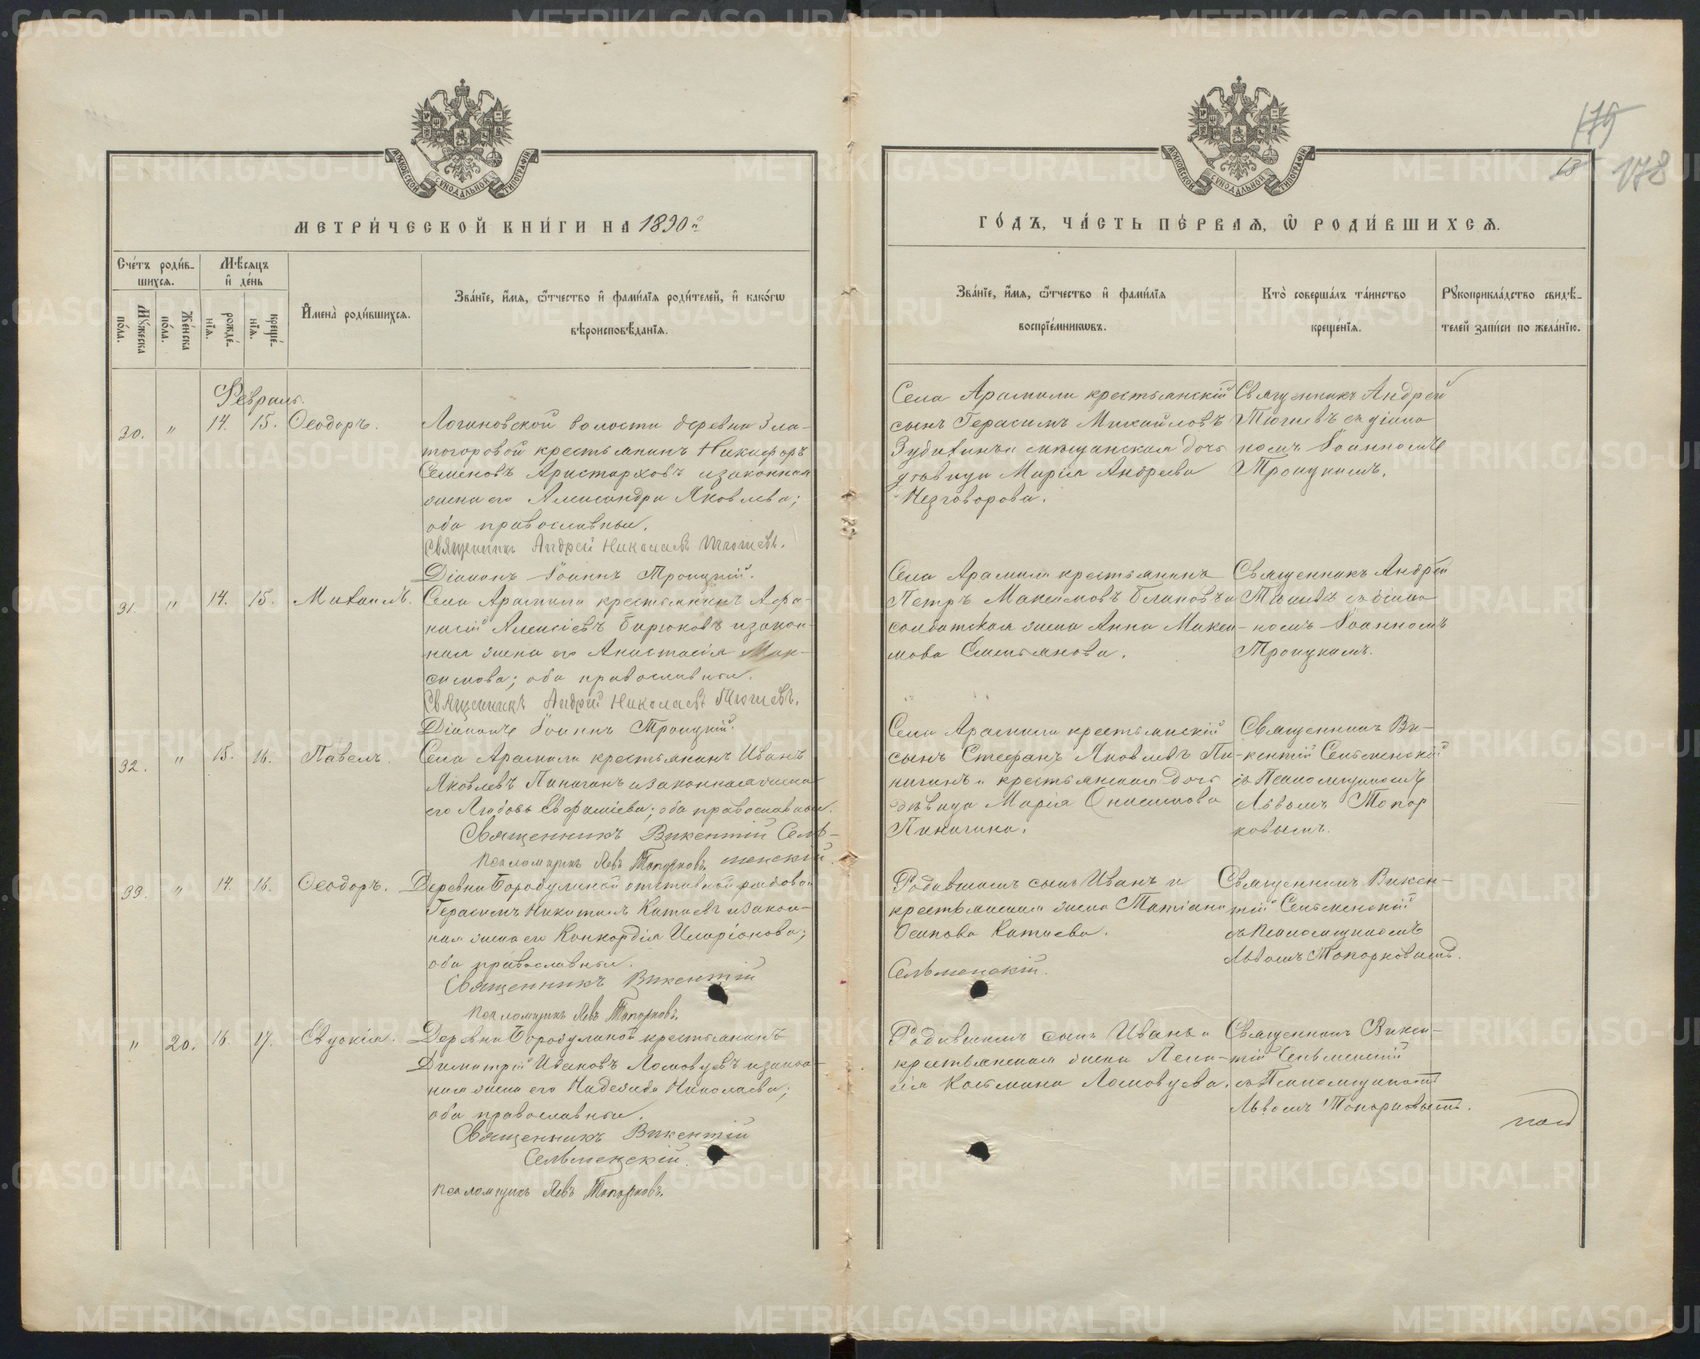 МЕТРИ́ЧЕСКОЙ КНИ́ГИ НА 1890 г.
Сче́тъ роди́в-
шихся.
Мѣ́сяцъ
и҆ де́нь
Му́жеска по́ла.
Же́нска по́ла.
рожде́-
нїѧ.
креще́-
нїѧ.
И҆мена̀ роди́вшихсѧ.
Зва́нїе, и҆́мѧ, ѻ҆́тчество и҆ фами́лїѧ роди́телей, и҆ како́гѡ
вѣроисповѣ́данїѧ.
Февраль.
30. " 14. 15. Ѳеодоръ.
Логиновской волости деревни Зла-
тогоровой крестьянинъ Никифоръ
Семеновъ Аристарховъ и законная
жена его Александра Яковлева;
оба православные.
Священникъ Андрей Николаевъ Тюшевъ.
Діаконъ Іоаннъ Троицкій.
31. " 14. 15. Михаилъ.
Села Арамили крестьянинъ Афа-
насій Алексіевъ Бирюковъ и закон-
ная жена его Анастасія Мак-
симова; оба православные.
Священникъ Андрей Николаевъ Тюшевъ.
Діаконъ Іоаннъ Троицкій.
32. " 15. 16. Павелъ.
Села Арамили крестьянинъ Иванъ
Яковлевъ Пинигинъ и законная жена
его Любовь Евфиміева; оба православные.
Священникъ Викентій Сель-
менскій.
Псаломщикъ Левъ Топорковъ.
33. " 14. 16. Ѳеодоръ.
Деревни Бородулиной отставной рядовой
Герасимъ Никитинъ Катаевъ и закон-
ная жена его Конкордія Иларіонова;
оба православные.
Священникъ Викентій
Псаломщикъ Левъ Топорковъ.
" 20. 16 17. Евдокія.
Деревни Бородулиной крестьянинъ
Димитрій Ивановъ Ломовцевъ и закон-
ная жена его Надежда Николаева;
оба православные.
Священникъ Викентій
Сельменскій.
Псаломщикъ Левъ Топорковъ.
175
18
178
ГО́ДЪ, ЧА́СТЬ ПЕ́РВАѦ, Ѽ РОДИ́ВШИХСѦ.
Зва́нїе, и҆́мѧ, ѻ҆́тчество и҆ фами́лїѧ
воспрїе́мникѡвъ.
Кто̀ соверша́лъ та́инство
креще́нїѧ.
Рꙋкоприкла́дство свидѣ́-
телей за́писи по жела́нїю.
Села Арамили крестьянскій
сынъ Герасимъ Михайловъ
Зубихинъ и мѣщанская дочь
дѣвица Марія Андреева
Незговорова.
Священникъ Андрей
Тюшевъ съ діако-
номъ Іоанномъ
Троицкимъ.
Села Арамили крестьянинъ
Петръ Максимовъ Блиновъ и
солдатская жена Анна Макси-
мова Емельянова.
Священникъ Андрей
Тюшевъ съ діако-
номъ Іоанномъ
Троицкимъ.
Села Арамили крестьянскій
сынъ Стефанъ Яковлевъ Пи-
нигинъ и крестьянская дочь
дѣвица Марія Онисимова
Пинигина.
Священникъ Ви-
кентій Сельменскій
съ Псаломщикомъ
Львомъ Топор
ковымъ.
Родившаго сынъ Иванъ и
крестьянская жена Татіана
Осипова Катаева.
Сельменскій.
Священникъ Викен-
тій Сельменскій
съ Псаломщикомъ
Львомъ Топорковымъ.
Родившаго сынъ Иванъ и
крестьянская жена Пела-
гія Козьмина Ломовцева.
Священникъ Викен-
тій Сельменскій
съ Псаломщикомъ
Львомъ Топорковымъ.